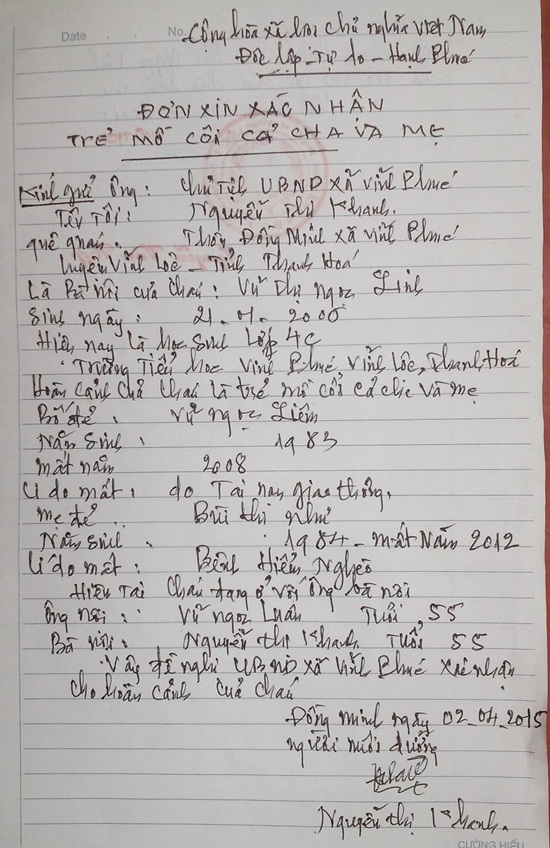 Date No.
Cộng hòa xã hội chủ nghĩa Việt Nam
Độc lập - Tự do - Hạnh Phúc
ĐƠN XIN XÁC NHẬN
TRẺ MỒ CÔI CẢ CHA VÀ MẸ
Kính gửi ông: Chủ tịch UBND xã Vĩnh Phúc
Tên tôi: Nguyễn thị Khanh.
quê quán: Thôn Đồng Minh xã Vĩnh Phúc
huyện Vĩnh Lộc - Tỉnh Thanh Hoá
Là Bà nội của cháu: Vũ Thị Ngọc Linh
Sinh ngày: 21.01.2005
Hiện nay là học sinh Lớp 4C
Trường Tiểu học Vĩnh Phúc, Vĩnh Lộc, Thanh Hoá
Hoàn cảnh cháu là trẻ mồ côi cả cha và mẹ
Bố đẻ: Vũ Ngọc Liêm
Năm sinh: 1983
mất năm 2008
Lí do mất: do Tai nạn giao thông.
mẹ đẻ: Bùi thị như
Năm sinh: 1984 - mất Năm 2012
Lí do mất: Bệnh Hiểm Nghèo
Hiện Tại cháu đang ở với ông bà nội
Ông nội: Vũ ngọc Luân Tuổi 55
Bà nội: Nguyễn thị Khanh Tuổi 55
Vậy đề nghị UBND xã Vĩnh Phúc xác nhận
cho hoàn cảnh của cháu
Đồng minh ngày 02.04.2015
người nuôi dưỡng
Nguyễn thị Khanh.
CƯỜNG HIẾU